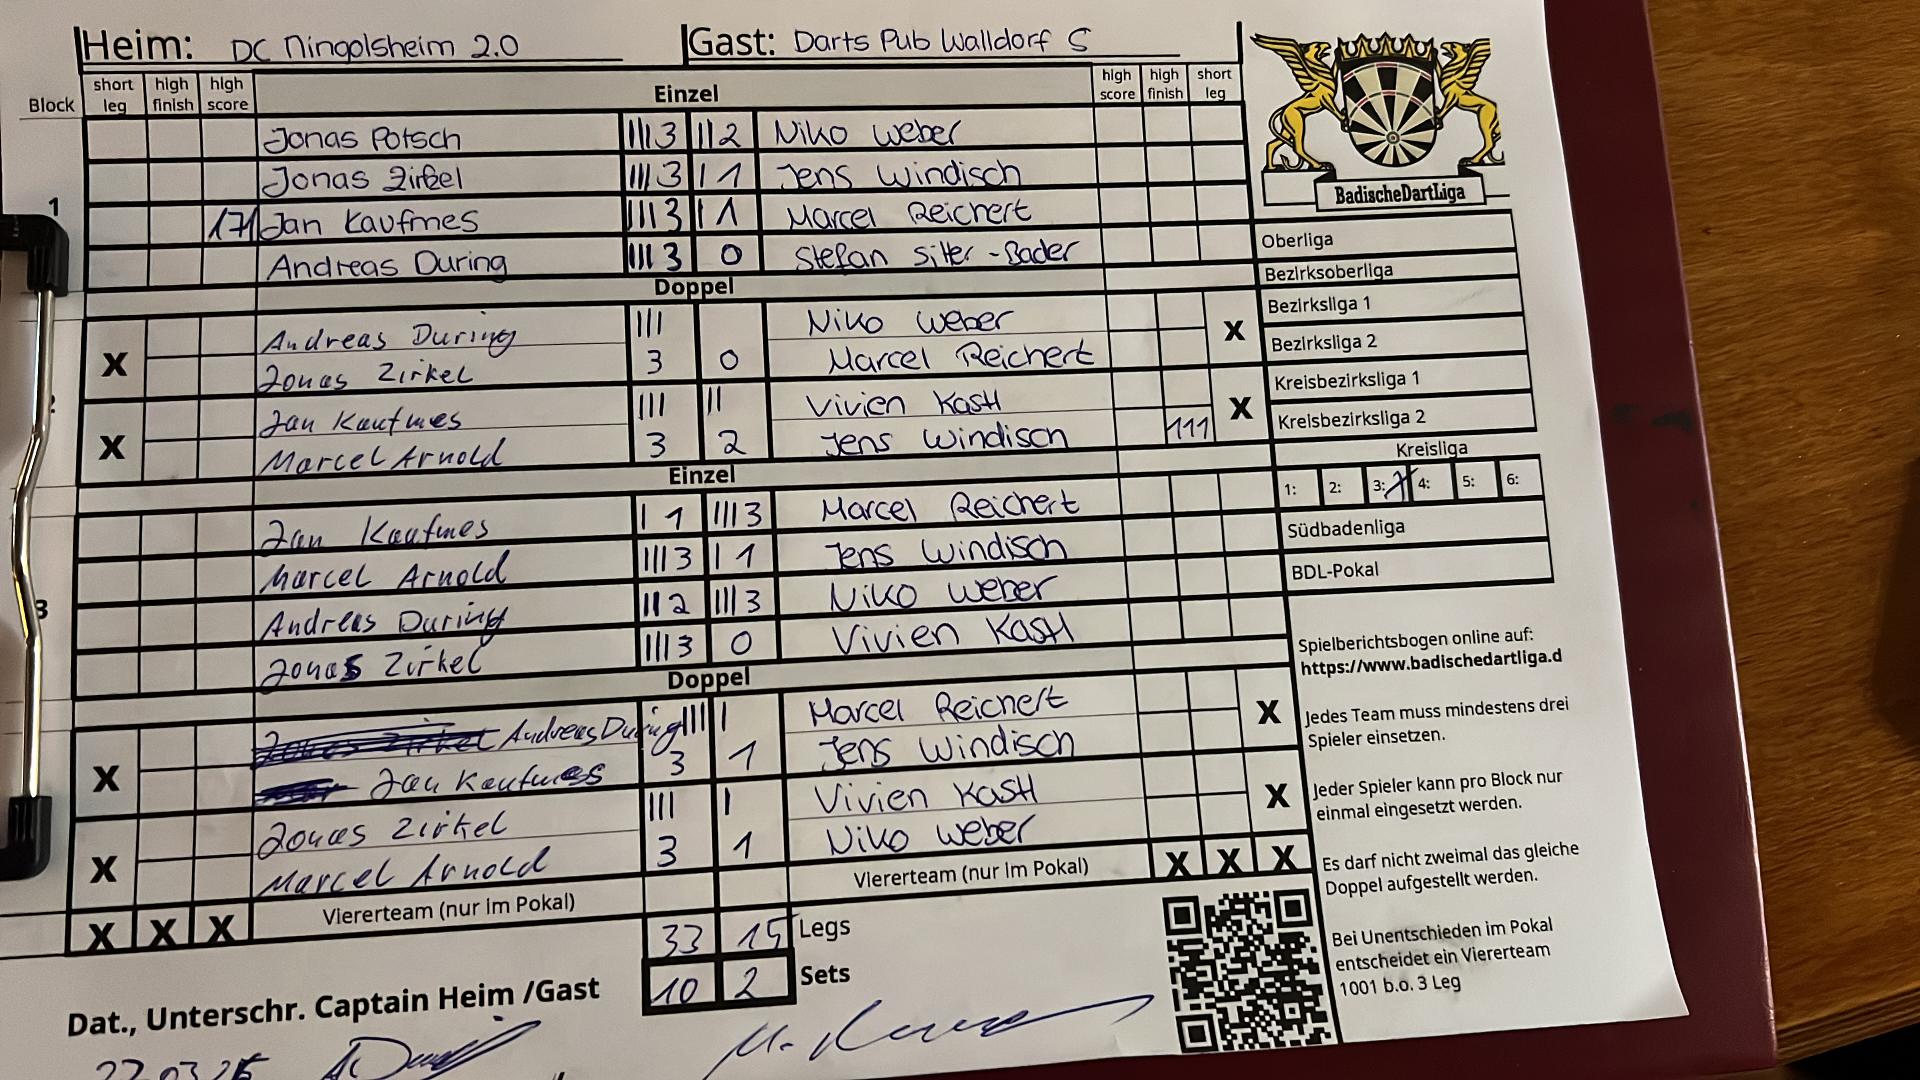 Heim: DC Mingolsheim 2.0 Gast: Darts Pub Walldorf 5
Block short leg high finish high score Einzel high score high finish short leg
Jonas Potsch III 3 II 2 Niko Weber
Jonas Zirkel III 3 I 1 Jens Windisch
1 171 Jan Kaufmes III 3 I 1 Marcel Reichert
Andreas During III 3 0 Stefan Sitter-Bader
Doppel
Andreas During III Niko Weber
X 3 0 X
Jonas Zirkel Marcel Reichert
Jan Kaufmes III II Vivien Kastl
X 3 2 X
Marcel Arnold Jens Windisch 111
Einzel
Jan Kaufmes I 1 III 3 Marcel Reichert
Marcel Arnold III 3 I 1 Jens Windisch
3 Andreas During II 2 III 3 Niko Weber
Jonas Zirkel III 3 0 Vivien Kastl
Doppel
Andreas During III I Marcel Reichert
X 3 1 X
Jan Kaufmes Jens Windisch
Jonas Zirkel III I Vivien Kastl
X 3 1 X
Marcel Arnold Niko Weber
X X X Viererteam (nur im Pokal) Viererteam (nur im Pokal) X X X
33 15 Legs
10 2 Sets
Dat., Unterschr. Captain Heim /Gast
BadischeDartLiga
Oberliga
Bezirksoberliga
Bezirksliga 1
Bezirksliga 2
Kreisbezirksliga 1
Kreisbezirksliga 2
Kreisliga
1: 2: 3: X 4: 5: 6:
Südbadenliga
BDL-Pokal
Spielberichtsbogen online auf:
https://www.badischedartliga.d
Jedes Team muss mindestens drei
Spieler einsetzen.
Jeder Spieler kann pro Block nur
einmal eingesetzt werden.
Es darf nicht zweimal das gleiche
Doppel aufgestellt werden.
Bei Unentschieden im Pokal
entscheidet ein Viererteam
1001 b.o. 3 Leg